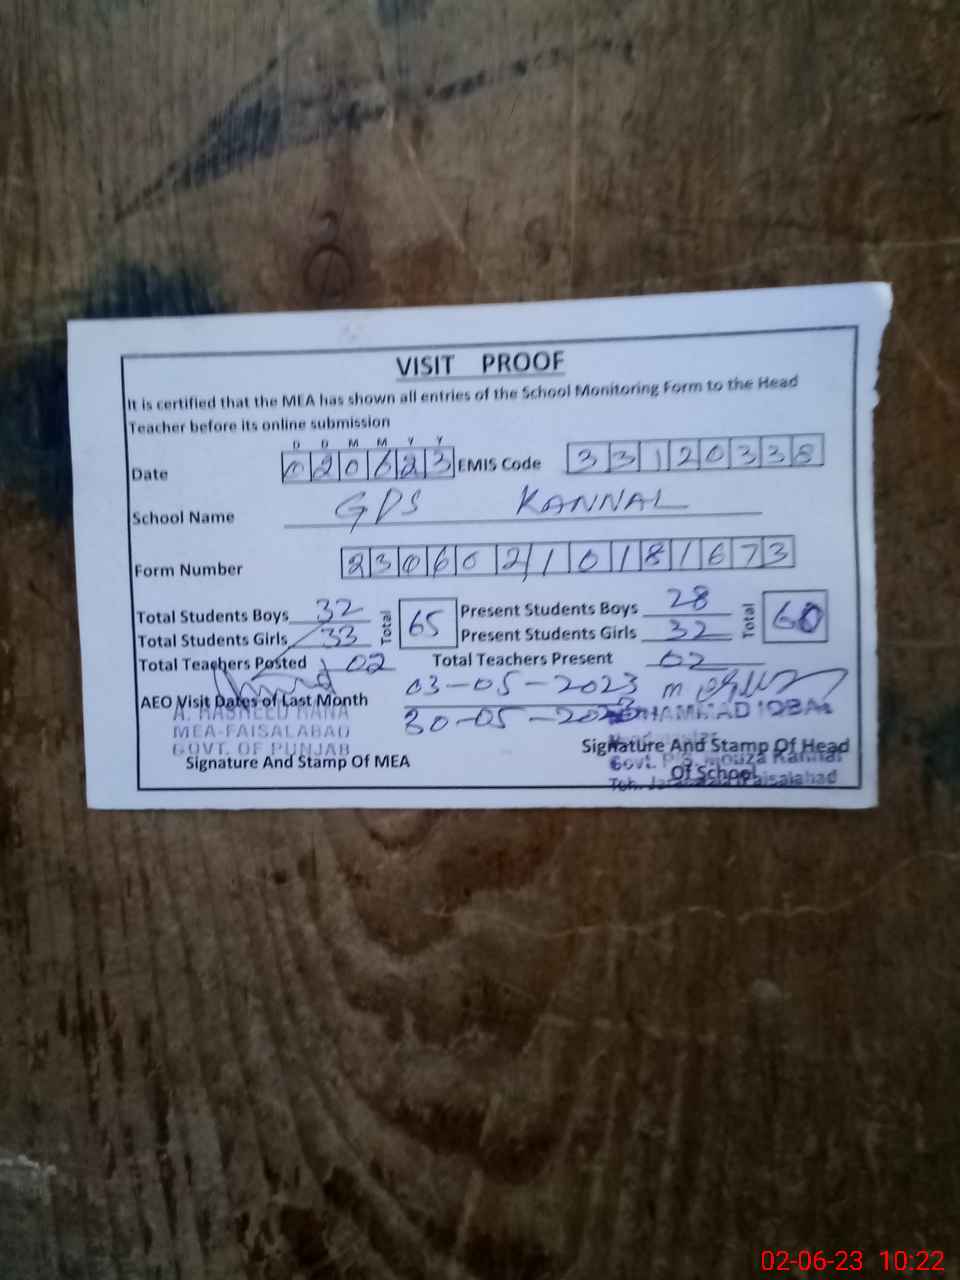 VISIT PROOF
It is certified that the MEA has shown all entries of the School Monitoring Form to the Head
Teacher before its online submission
D D M M Y Y
Date 020623 EMIS Code 33120338
School Name GPS KANNAL
Form Number 23060210181673
Total Students Boys 32 Total 65 Present Students Boys 28 Total 60
Total Students Girls 33 Present Students Girls 32
Total Teachers Posted 02 Total Teachers Present 02
AEO Visit Dates of Last Month 03-05-2023
30-05-2023
A. RASHEED RANA
MEA-FAISALABAD
GOVT. OF PUNJAB
Signature And Stamp Of MEA
MUHAMMAD IQBAL
Signature And Stamp Of Head
Govt. P/S Mouza Kannal
Of School
Teh. Jaranwala Faisalabad
02-06-23 10:22